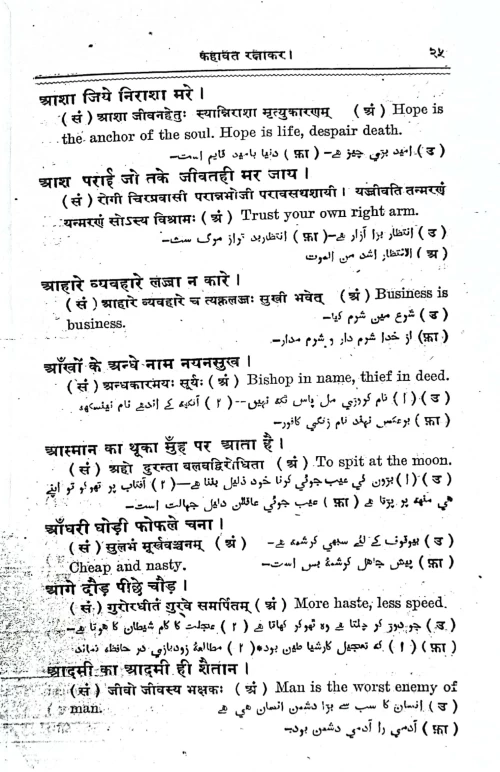 कहावत रत्नाकर।
२५
आशा जिये निराशा मरे।
(सं) आशा जीवनहेतुः स्यान्निराशा मृत्युकारणम् (अं) Hope is
the anchor of the soul. Hope is life, despair death.
(उ) امید بڑی چیز ہے— (फ़ा) دنیا بامید قایم است—
आश पराई जो तके जीवतही मर जाय।
(सं) रोगी चिरप्रवासी परान्नभोजी परावसथशायी। यज्जीवति तन्मरणं
यन्मरणं सोऽस्य विश्रामः (अं) Trust your own right arm.
(उ) انتظار بڑا آزار ہے— (फ़ा) انتظار بد تراز مرگ ست—
(अ) الانتظار اشد من الموت
आहारे व्यवहारे लज्जा न कारे।
(सं) आहारे व्यवहारे च त्यक्तलज्जः सुखी भवेत् (अं) Business is
business.
(उ) شرع میں شرم کیا—
(फ़ा) از خدا شرم دار و شرم مدار—
आँखों के अन्धे नाम नयनसुख।
(सं) अन्धकारमयः सूर्यः (अं) Bishop in name, thief in deed.
(उ) (۱) نام کروڑی مل پاس ٹکہ نہیں— (۲) آنکھہ کے اندھے نام نینسکھہ
(फ़ा) برعکس نہند نام زنگی کافور—
आस्मान का थूका मुँह पर आता है।
(सं) अहो दुरन्ता बलवद्विरोधिता (अं) To spit at the moon.
(उ) (۱) بڑوں کی عیب جوئی کرنا خود ذلیل بننا ہے— (۲) آفتاب پر تھوکو تو اپنے
ھی منھہ پر پڑتا ہے (फ़ा) عیب جوئی عاقلاں دلیل جہالت است—
आँधरी घोड़ी फोफले चना।
(सं) सुलभं मूर्खवञ्चनम् (अं)
Cheap and nasty.
(उ) بیوقوف کے لئے سبھی کرشمہ ہے—
(फ़ा) پیش جاھل کرشمۂ بس است—
आगे दौड़ पीछे चौड़।
(सं) गुरोरधीतं गुरवे समर्पितम् (अं) More haste, less speed.
(उ) (۱) جو دوڑ کر چلتا ہے وہ ٹھوکر کھاتا ہے (۲) عجلت کا کام شیطان کا ھوتا ہے—
(फ़ा) (۱) کہ تعجیل کار شیاطین بود (۲) مطالعۂ زودبازی در حافظہ نماند
आदमी का आदमी ही शैतान।
(सं) जीवो जीवस्य भक्षकः (अं) Man is the worst enemy of
man.
(उ) انسان کا سب سے بڑا دشمن انسان ھی ہے
(फ़ा) آدمی را آدمی دشمن بود—